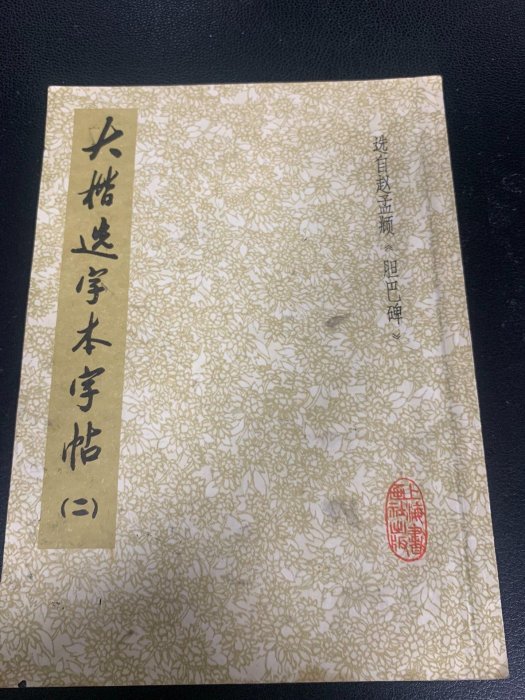 选自赵孟頫《胆巴碑》
大楷选字本字帖(二)
上海書
畫社出版